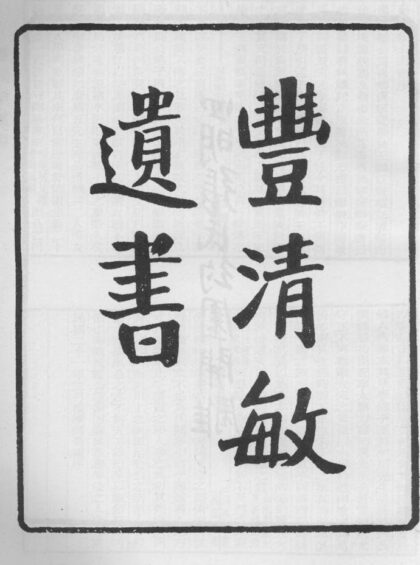 豐清敏
遺書